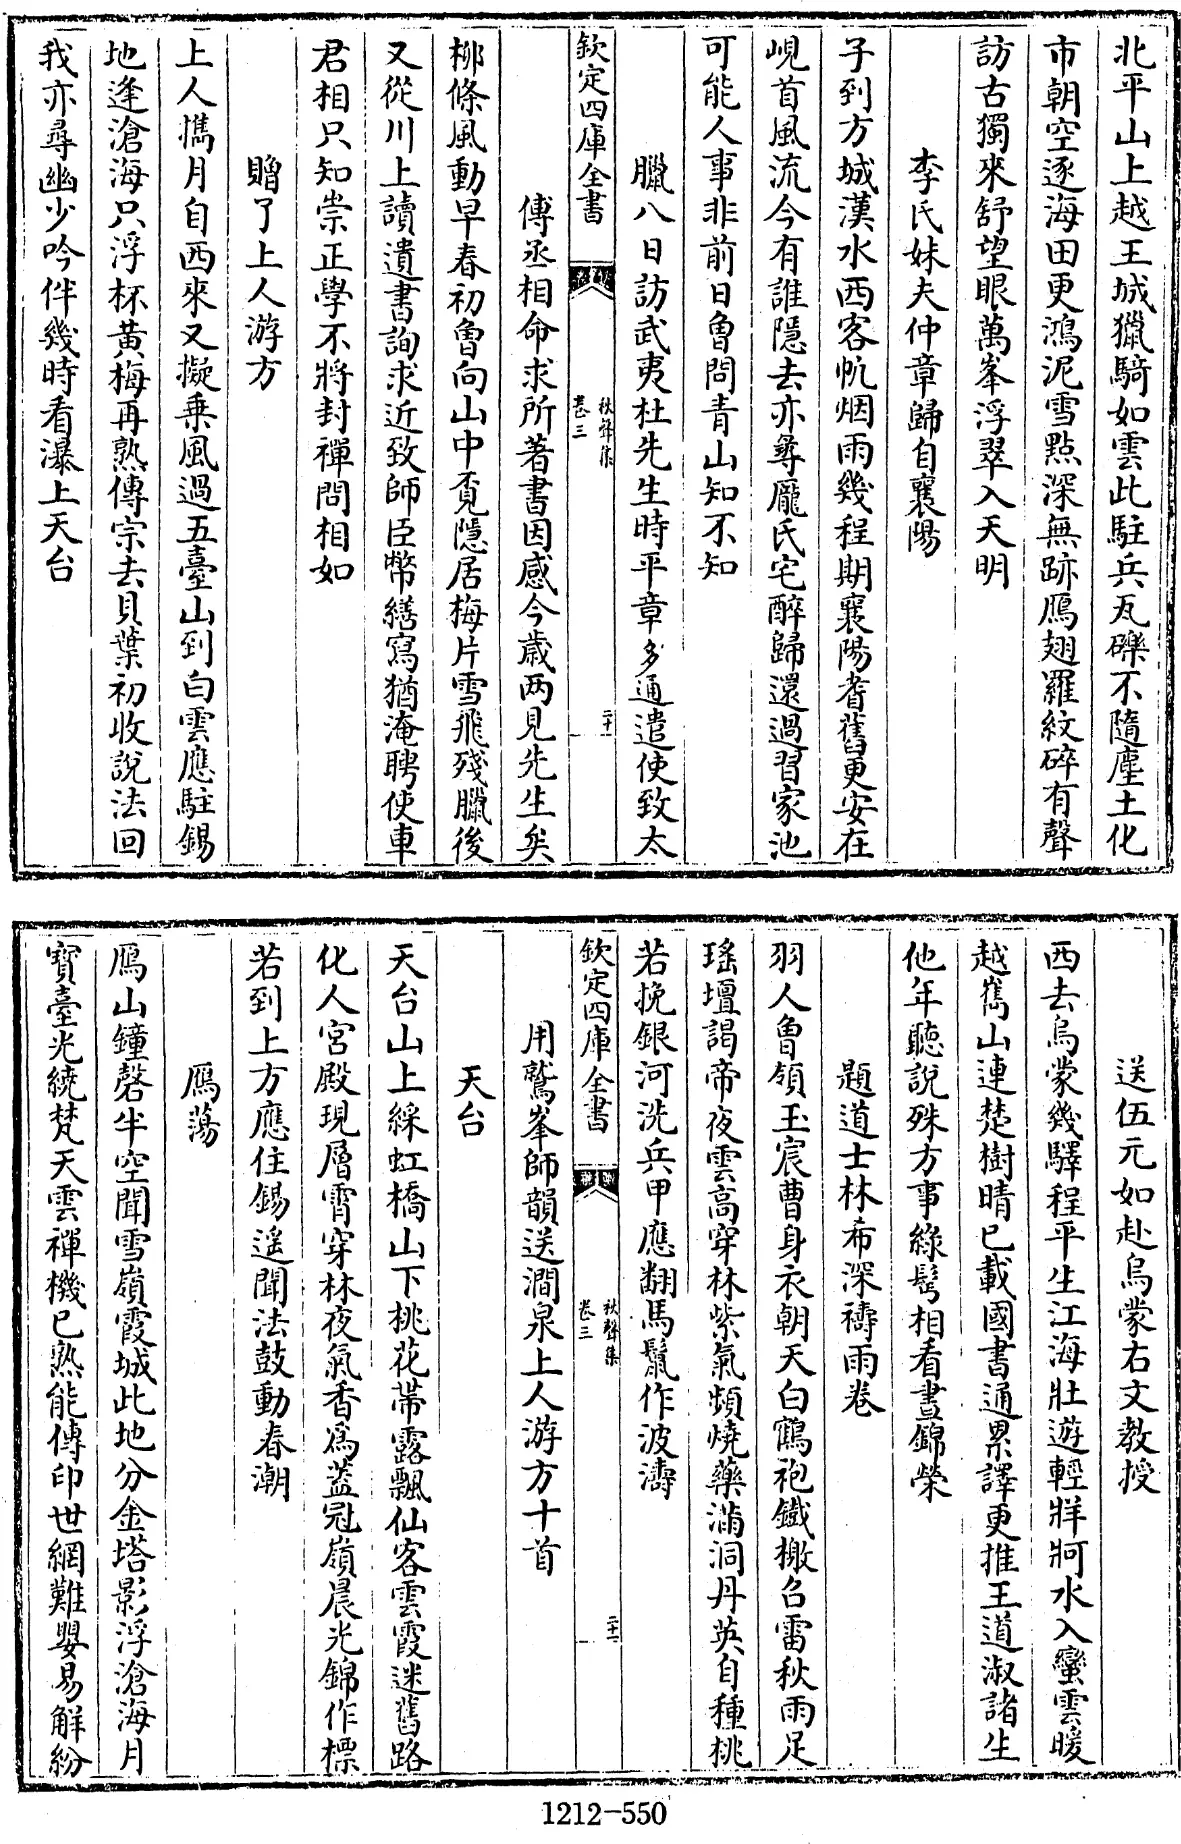 北平山上越王城獵騎如雲此駐兵瓦礫不隨塵土化
市朝空逐海田更鴻泥雪點深無跡鴈翅羅紋碎有聲
訪古獨來舒望眼萬峯浮翠入天明
李氏妹夫仲章歸自襄陽
子到方城漢水西客帆烟雨幾程期襄陽耆舊更安在
峴首風流今有誰隱去亦尋龐氏宅醉歸還過習家池
可能人事非前日曾問青山知不知
臘八日訪武夷杜先生時平章多通遣使致太
欽定四庫全書
秋聲集
卷三
二十
傅丞相命求所著書因感今歲两見先生矣
柳條風動早春初曾向山中覔隱居梅片雪飛殘臘後
又從川上讀遺書詢求近致師臣幣繕寫猶淹聘使車
君相只知崇正學不將封禪問相如
贈了上人游方
上人攜月自西來又擬乗風過五臺山到白雲應駐錫
地逢滄海只浮杯黃梅再熟傳宗去貝葉初收說法回
我亦尋幽少吟伴幾時看瀑上天台
送伍元如赴烏蒙右文教授
西去烏蒙幾驛程平生江海壯遊輕牂牁水入蠻雲暖
越嶲山連楚樹晴已載國書通累譯更推王道淑諸生
他年聽說殊方事綠髩相看晝錦榮
題道士林希深禱雨卷
羽人曾領玉宸曹身衣朝天白鶴袍鐡檄召雷秋雨足
瑤壇謁帝夜雲高穿林紫氣頻燒藥滿洞丹英自種桃
若挽銀河洗兵甲應翻馬鬣作波濤
欽定四庫全書
秋聲集
卷三
二十一
用鷲峯師韻送澗泉上人游方十首
天台
天台山上綵虹橋山下桃花帶露飄仙客雲霞迷舊路
化人宮殿現層霄穿林夜氣香爲葢冠嶺晨光錦作標
若到上方應住錫遥聞法鼓動春潮
鴈蕩
鴈山鐘磬半空聞雪嶺霞城此地分金塔影浮滄海月
寳臺光繞梵天雲禪機已熟能傳印世網難嬰易解紛
1212-550